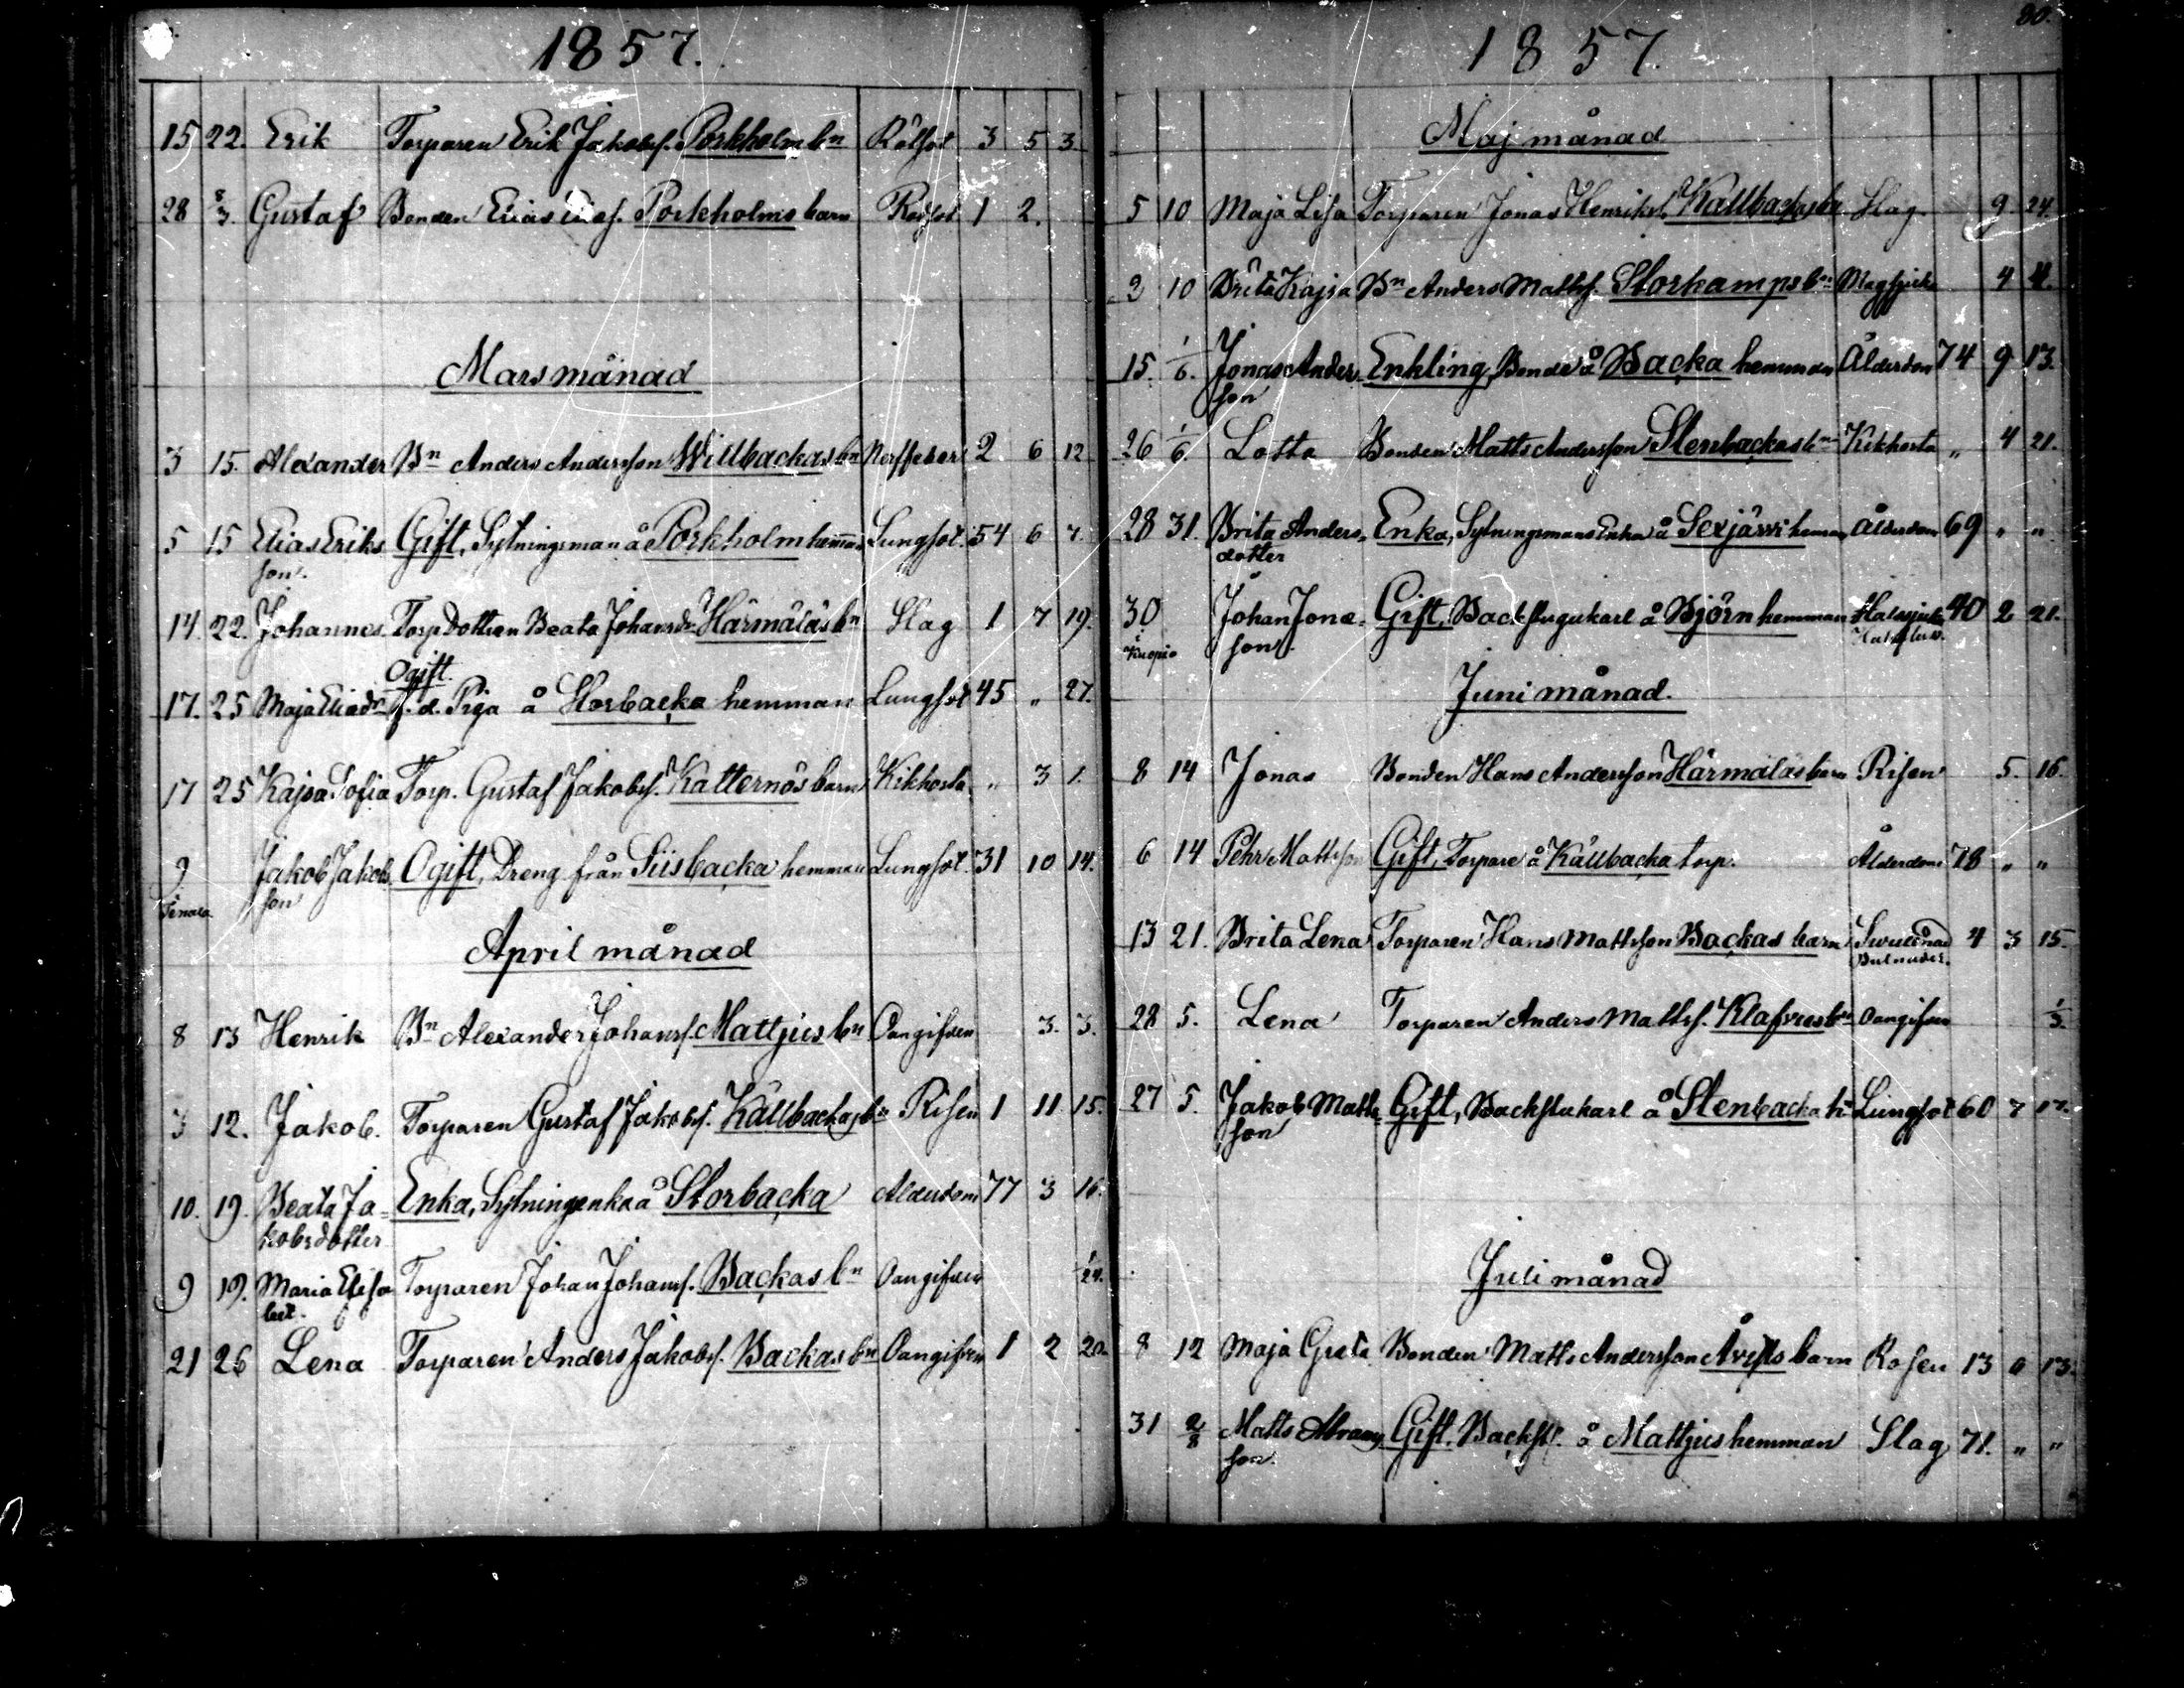 1857.
15 22. Erik Torparen Erik Jakobss. Porkholm bn Rötsot 3 5 3
28 8/3. Gustaf Bonden Elias Elias. Porkholms barn Rödsot 1 2.
Mars månad
3 15. Alexander Bn Anders Andersson Willbackas bn Nerffeber 2 6 12
5 15 Elias Eriks Gift, Sytningsman å Porkholm hemman Lungsot. 54 6 7.
son.
14. 22. Johannes. Torp Dottren Beata Johansdr Härmäläs bn Slag 1 7 19.
Ogift.
17. 25 Maja Eliadr f. d. Piga å Storbacka hemman Lungsot 45 " 27.
17 25 Kajsa Sofia Torp. Gustaf Jakobss. Katternös barn Kikhosta " 3 1.
9. Jakob Jakobs Ogift, Dreng från Siisbacka hemman Lungsot. 31 10 14.
Tenala son
April månad
8 13 Henrik Bn Alexander Johanss. Mattjus bn Oangifven 3. 3.
3 12. Jakob. Torparen Gustaf Jakobss. Källbackas bn Risen 1 11 15.
10. 19. Beata Ja= Enka, Sytningenka å Storbacka Alderdom 77 3 16.
kobsdotter
9 19. Maria Elisa Torparen Johan Johanss. Backas bn Oangifven 1/24.
bet.
21 26 Lena Torparen Anders Jakobss. Backas bn Oangifven 1 2 20.
80.
1857.
Maj månad
5 10 Maja Lisa Torparen Jonas Henrikss. Källbackas bn Slag. 9. 24.
2 10 Brita Kajsa Bn Anders Matts. Storkamps bn Magsjuk 4 4.
15. 1/6. Jonas Anders Enkling, Bonde å Backa hemman Ålderdom 74 9 13.
son
26 1/6. Lotta Bonden Matts Andersson Stenbackas bn Kikhosta " 4 21.
28 31. Brita Anders= Enka, Sytningsmans Enka å Sexjärvi heman Ålderdom 69 " "
dotter
30 Johan Jona= Gift, Backstugukarl å Björn hemman Halssjuk 40 2 21.
i Kuopio son
Juni månad.
8 14 Jonas Bonden Hans Andersson Härmäläs barn Risen 5. 16.
6 14 Pehr Mattsson Gift, Torpare å Källbacka torp. Ålderdom 78 " "
13 21. Brita Lena Torparen Hans Mattsson Backas barn Swullnad 4 3 15.
28 5. Lena Torparen Anders Matts. Klafvus bn Oangifven 1/3.
27 5. Jakob Matts Gift, Backstukarl å Stenbacka hn Lungsot 60 7 17.
son
Juli månad
8 12 Maja Greta Bonden Matts Andersson Åvists barn Rosen 13 0 13.
31 2/8 Matts Abrams Gift. Backst. å Mattjus hemman Slag 71. " "
son.